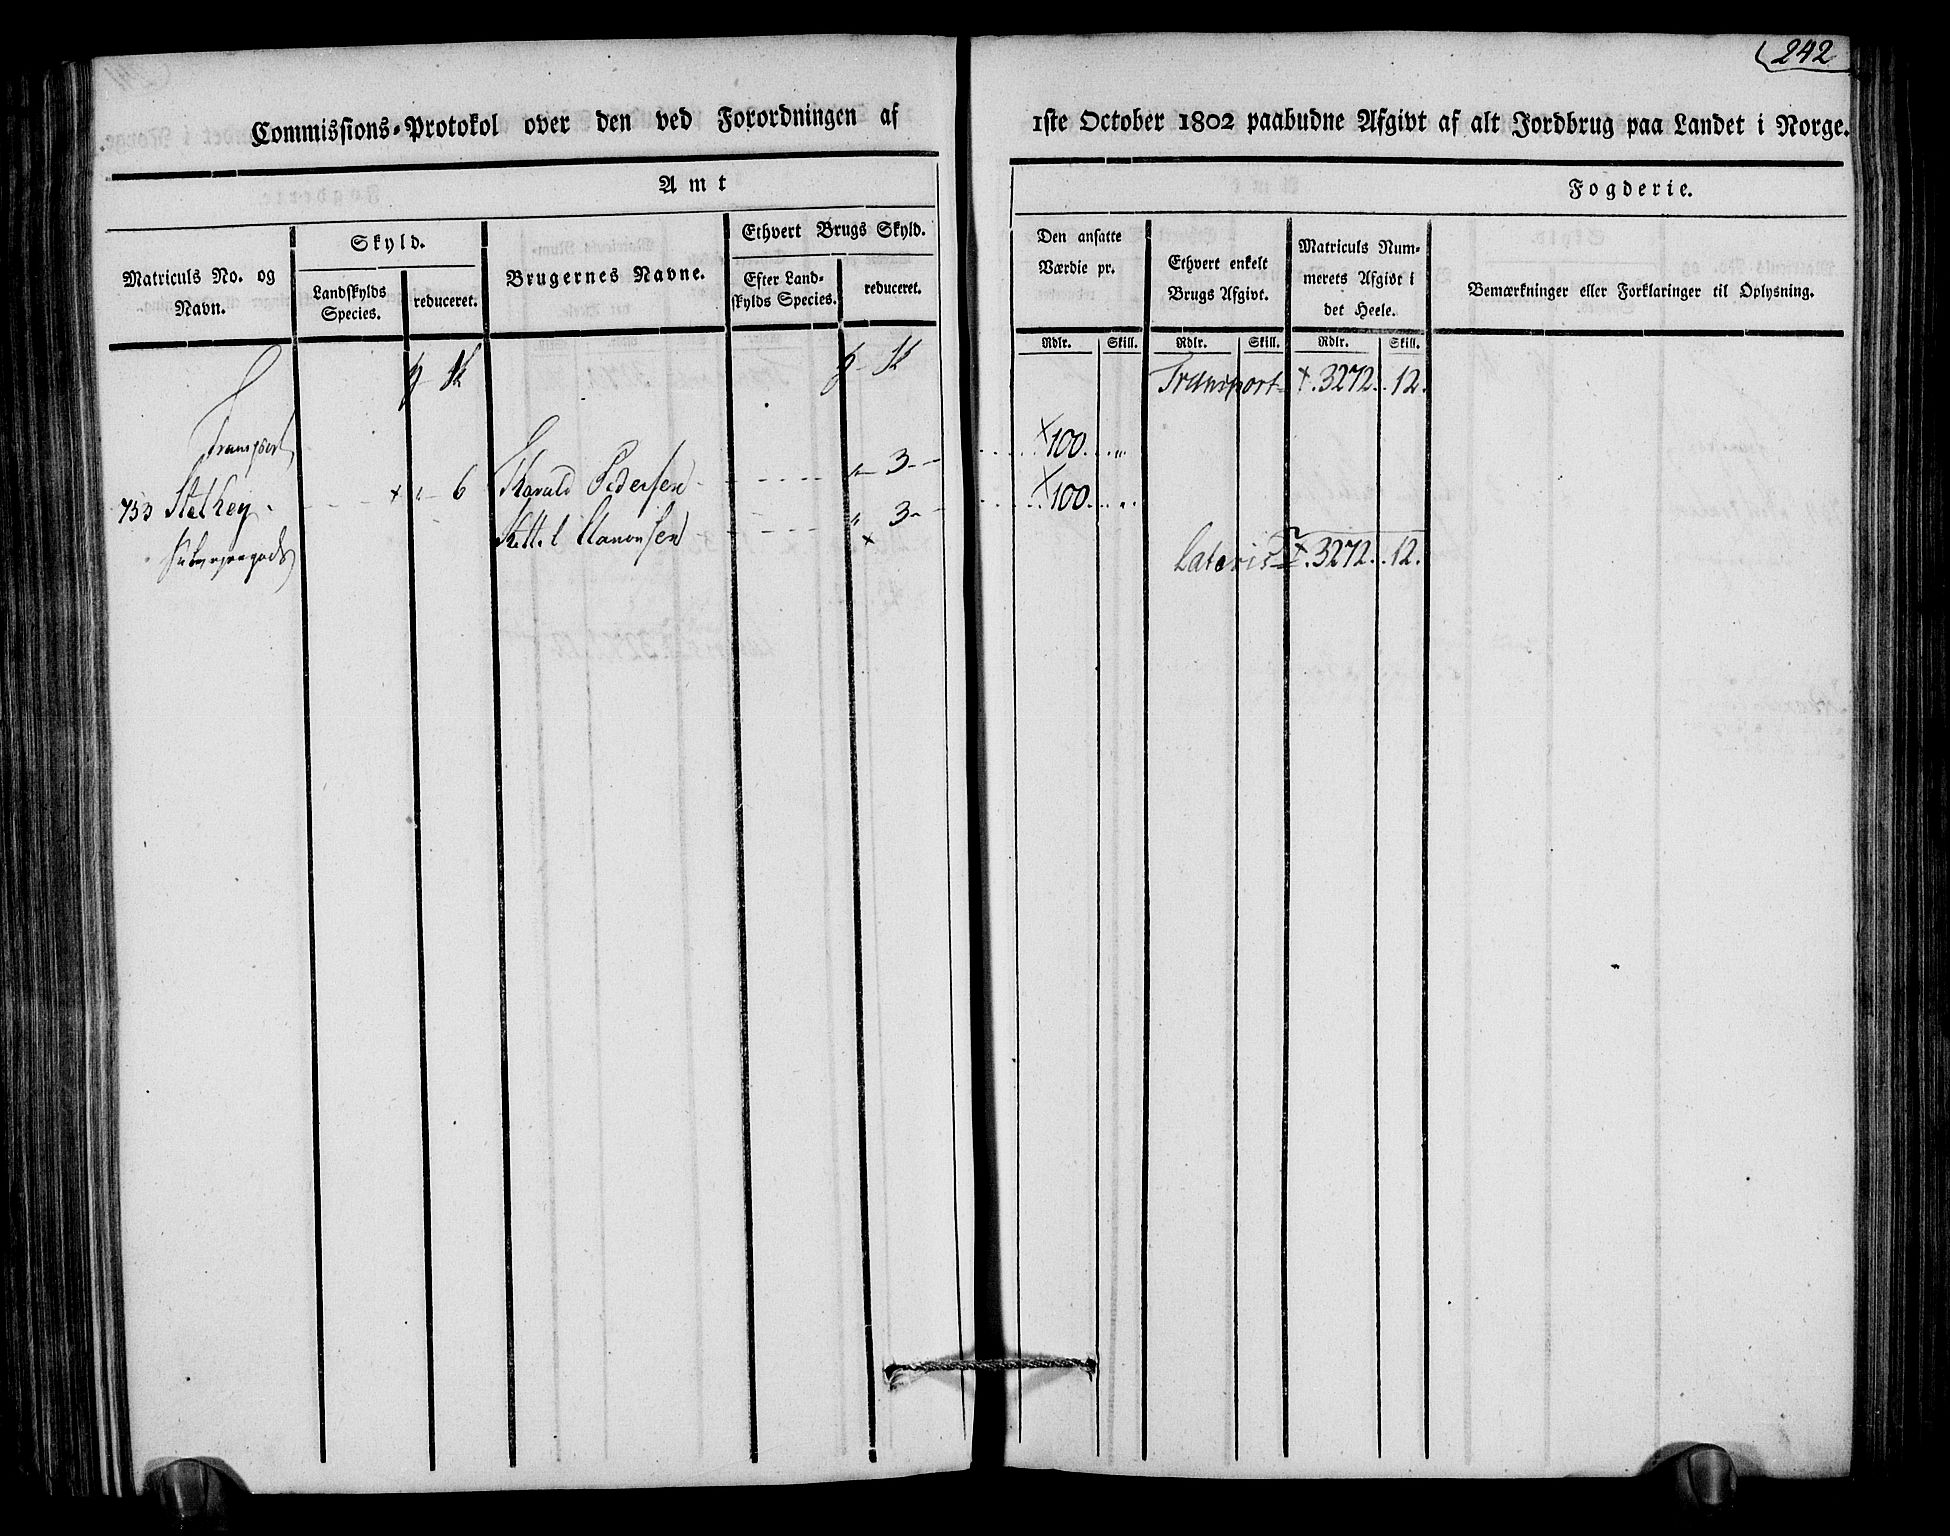 242
Commissions-Protokol over den ved Forordningen af 1ste October 1802 paabudne Afgivt af alt Jordbrug paa Landet i Norge.
Amt Fogderie.
Matriculs No. og Navn.
Skyld.
Landskylds Species.
reduceret.
Brugernes Navne.
Ethvert Brugs Skyld.
Efter Landskylds Species.
reduceret.
Den ansatte Værdie pr.
Rdlr. Skill.
Ethvert enkelt Brugs Afgivt.
Rdlr. Skill.
Matriculs Nummerets Afgivt i det Heele.
Rdlr. Skill.
Bemærkninger eller Forklaringer til Oplysning.
Transport 3272. 12.
Transport
753 6 Pedersen 3 100
3 100
Lateris 3272. 12.